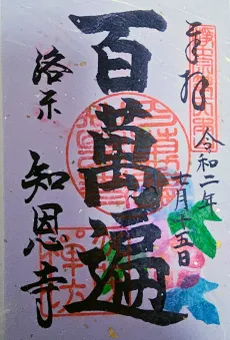 奉拝
令和二年
七月十五日
百萬遍
洛京
知恩寺